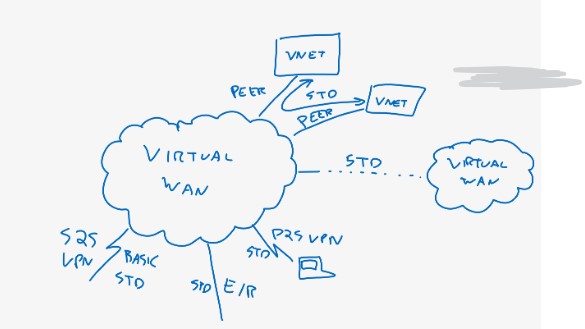 VNET
PEER
STD
VNET
PEER
VIRTUAL
WAN
STD
VIRTUAL
WAN
S2S
VPN
BASIC
STD
STD
E/R
P2S VPN
STD